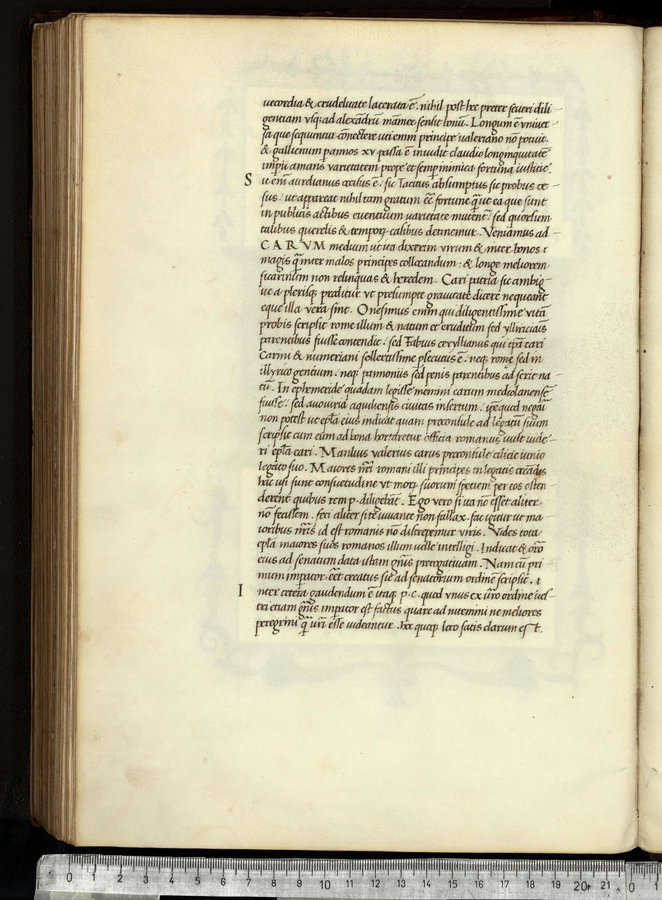 uecordia & crudelitate lacerata ē. nihil post hec preter seueri dili
gentiam usq; ad alexandrū māmeę sensit bonū. Longum ē uniuer
sa que sequuntur cōnectere uti enim principe ualeriano nō potuit.
& gallienum p annos xv passa ē inuidit claudio longinquitatē
imperii amans varietatem prope et semp inimica fortuna iusticie.
S
ic enī aurelianus occisus ē. sic Tacitus absumptus sic probus ce
sus. ut appareat nihil tam gratum eē fortune q̄ ut ea que sunt
in publicis actibus euentuum varietate mutent̄. sed quorsum
talibus querelis & temporȝ casibus detinemur. Veniamus ad
CARVM medium ut ita dixerim virum & inter bonos
magis q̄ inter malos principes collocandum: & longe meliorem
si carinum non relinquas & heredem. Cari patria sic ambig
ue a plerisq; proditur ut presumpte grauitate dicere nequeant
eque illa vera sint. Onesimus enim qui diligentissime vitā
probis scripsit rome illum & natum et eruditum sed yllirciaīs
parentibus fuisse contendit. sed Fabius ceryllianus qui tp̄a cari
Carini & numeriani sollertissime psecutus ē. neq; rome sed in
illyrico genitum. neq; pannoniis sed penis parentibus ad serit na
tū. In ephemeride quadam legisse memini carum mediolanensē
fuisse. sed auo uiria aquileiensis ciuitas insertum. ipe quod negari
non potest ut ep̄la eius indicat quam proconsule ad legatū suum
scripsit cum eum ad bona hortaretur officia romanus uult uide
ri ep̄la cari. Manlius valerius carus proconsule cilicie iunio
legato suo. Maiores nr̄i romani illi principes in legatis creādis
hac usi sunt consuetudine ut morȝ suorum spetiem per eos osten
derent quibus rem p. diligebāt. Ego vero si ita nō esset aliter
nō fecissem. feci aliter si te iuuante non fallax. fac igitur ut ma
ioribus nr̄is id est romanis nō discrepemur viris. Vides tota
ep̄la maiores suos romanos illum uelle intelligi. Indicat & orō
eius ad senatum data istam gn̄is prerogatiuam. Nam cū pri
mum impator. eēt creatus sic ad senatorum ordinē scripsit.
I
nter cetera gaudendum ē itaq; p.c. quod vnus ex uro ordine ues
tri etiam gn̄is impator est factus quare ad nitemini ne meliores
peregrini q̄ uri esse uideantur. hoc quoq; loco satis clarum est.